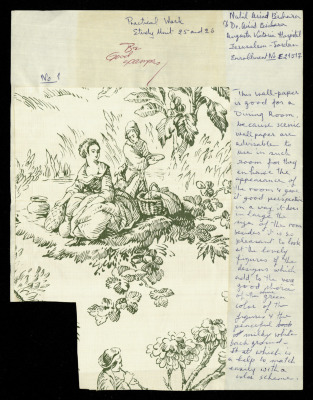 Practical Work
Study Unit 25 and 26
B+
Good
No 1
Nahil Bishara
c/o Dr. Bishara
Augusta Victoria Hospital
Jerusalem - Jordan
Enrollment No E21517
This wall-paper
is good for a
Dining Room,
because scenic
wallpaper are
advisable to
use in such
room for they
enhance the
appearance of
the room & give
good perspective
in a way it does
enlarge the
size of the room
besides it is
pleasant to look
at the lovely
figures of the
designs which
add to the very
good
of the green
color of the
figures & the
peaceful
milky white
back ground -
all which is
a help to match
easily with a
color scheme.